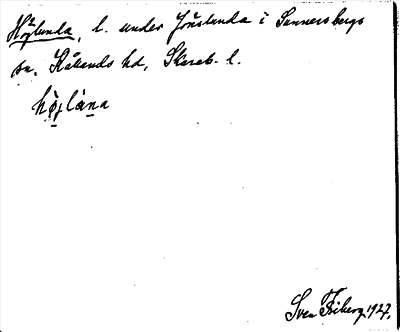 Höglunda, l. under Jönslunda i Sunnersbergs
sn. Kållands hd, Skarab. l.
Sven Friberg 1927.